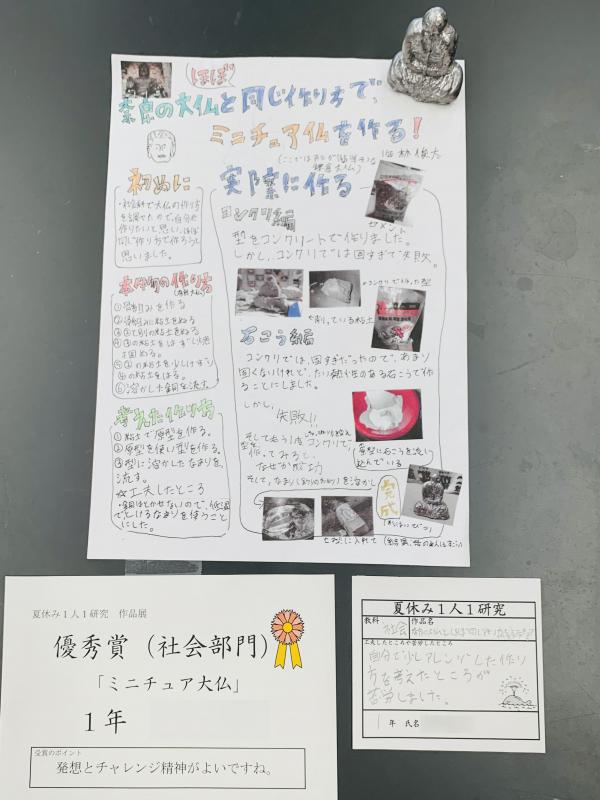 ほぼ
奈良の大仏と同じ作り方で、
ミニチュア仏を作る!
初めに
・社会科で大仏の作り方
を習ったので、自分も
作りたいと思い、ほぼ
同じ作り方で作ろうと
思いました。
本物の作り方
①骨組みを作る
②骨組みに粘土をぬる
⑥溶かした銅を流す
考えた作り方
①粘土で原型を作る。
②原型を使い型を作る。
③型に溶かしたなまりを
流す。
☆工夫したところ
・銅はとかせないので、低温
でとけるなまりを使うことに
にした。
実際に作る
コンクリ編
セメント
型をコンクリートで作りました。
しかし、コンクリでは固すぎて失敗。
↑コンクリで作った型
↑削っている粘土
石こう編
コンクリでは、固すぎだったので、あまり
固くないけれど、
耐熱性のある石こうで作
ることにしました。
しかし、
失敗!!
そしてもう1度コンクリで、
型を作ってみると、
なぜか成功
そして、なまり(釣りのおもり)を溶かし
原型に石こうを流し
込んでいる
完成
夏休み1人1研究 作品展
優秀賞(社会部門)
「ミニチュア大仏」
1年
受賞のポイント
発想とチャレンジ精神がよいですね。
夏休み1人1研究
教科 社会 作品名
工夫したところや苦労したところ
自分で少しアレンジした作り
方を考えたところが
苦労しました。
1年 氏名